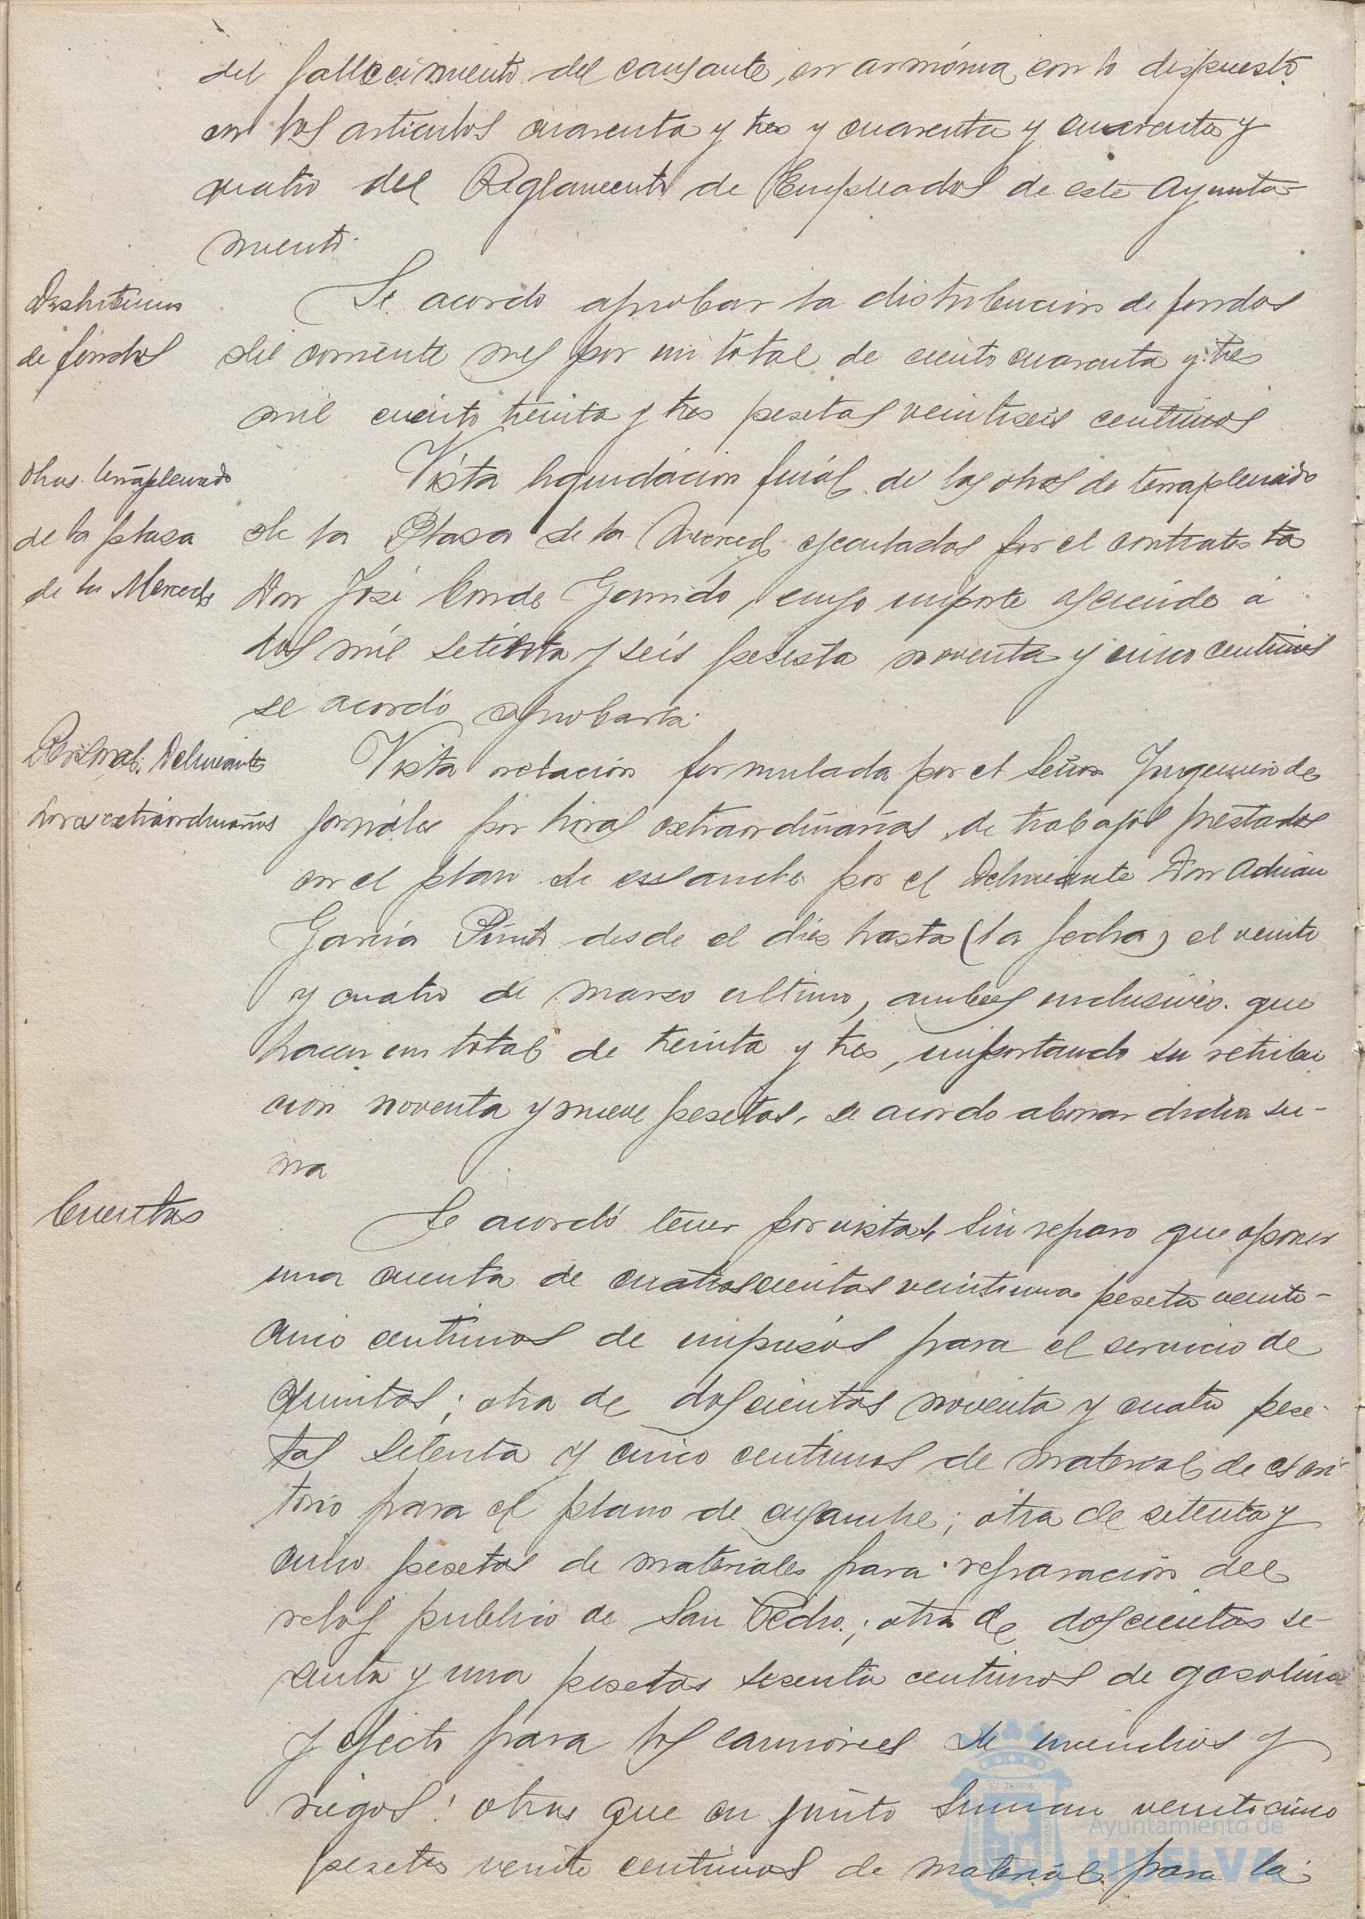 del fallecimiento del causante, en armónia con lo dispuesto
en los articulos cuarenta y tres y cuarenta y cuarenta y
cuatro del Reglamento de Empleados de este Ayunta-
miento.
Distribucion
de fondos
Se acordo aprobar la distribucion de fondos
del corriente mes por un total de ciento cuarenta y tres
mil ciento treinta y tres pesetas veintiseis centimos
Obras terraplenado
de la plasa
de la Merced
Vista liquidacion final de las obras de terraplenado
de la Plasa de la Merced ejecutadas por el contratista
Don José Conde Garrido, cuyo importe asciende á
dos mil setenta y seis peseta noventa y cinco centimos
se acordó aprobarla.
Personal; Delineante
horas extraordinarias
Vista relacion formulada por el Señor Ingeniero de
jornales por horas extraordinarias de trabajos prestados
en el plan de ensanche por el Delineante Don Adrian
Garcia Pinto desde el dies hasta (la fecha) el veinte
y cuatro de marzo ultimo, ambos inclusives que
hacen un total de treinta y tres, importando su retribu
cion noventa y nueve pesetas, se acordo abonar dicha su-
ma
Cuentas
Se acordó tener por vistas, sin reparo que oponer
una cuenta de cuatroscientas veintiuna peseta veinte-
cinco centimos de impresos para el servicio de
Quintas; otra de doscientas noventa y cuatro pese-
tas setenta y cinco centimos de material de escri-
torio para el plano de ensanche; otra de setenta y
cinco pesetas de materiales para reparacion del
reloj publico de San Pedro; otra de doscientas se-
senta y una pesetas sesenta centimos de gasolina
y efecto para los camiones de incendios y
riegos; otras que en junto suman veinticinco
pesetas veinte centimos de material para la
Ayuntamiento de
HUELVA